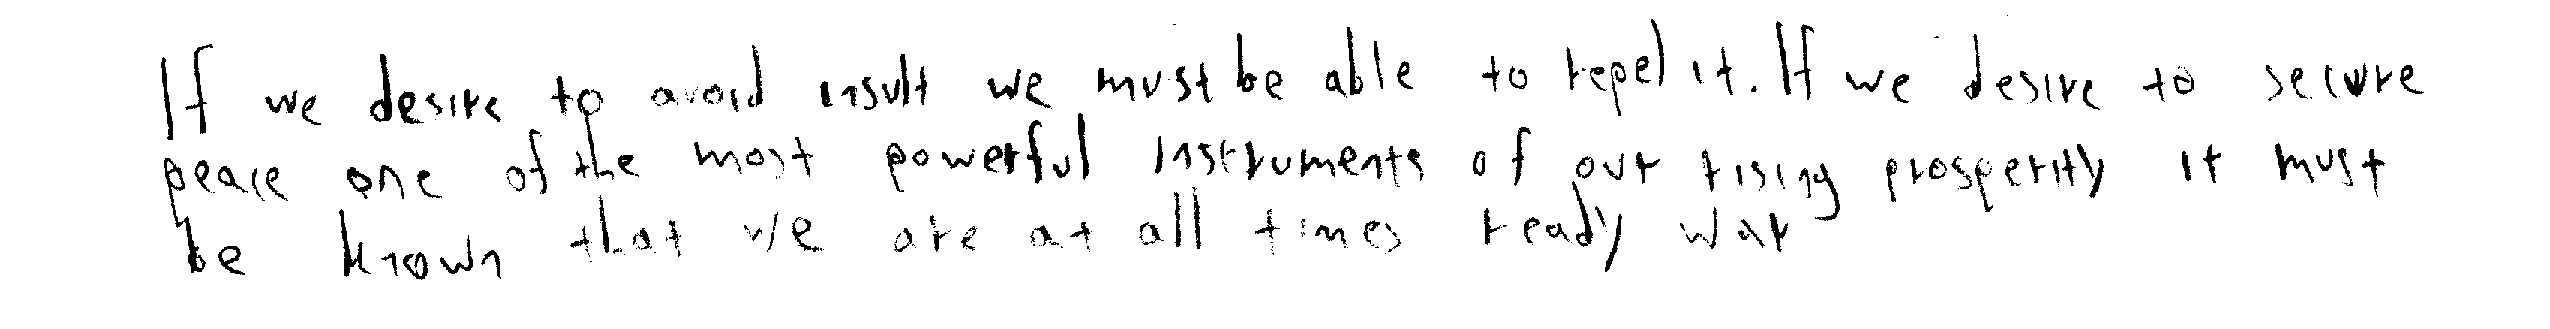 If we desire to avoid insult we must be able to repel it. If we desire to secure
peace one of the most powerful instruments of our rising prosperity it must
be known that we are at all times ready war